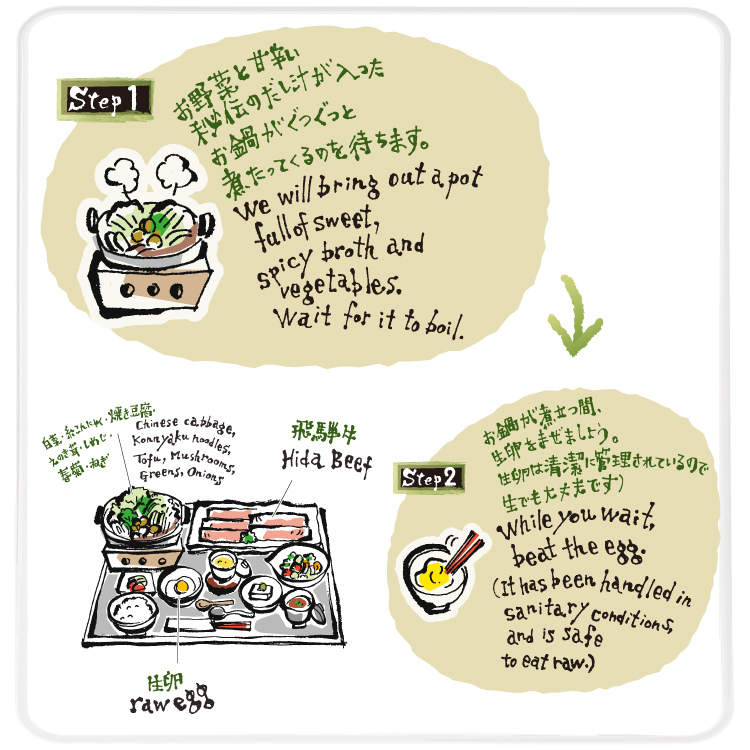 Step 1
お野菜と甘辛い
秘伝のだし汁が入った
お鍋がぐつぐつと
煮たってくるのを待ちます。
We will bring out a pot
full of sweet,
spicy broth and
vegetables.
Wait for it to boil.
白菜・糸こんにゃく・焼き豆腐・
えのき茸・しめじ・
春菊・ねぎ
Chinese cabbage,
Konnyaku noodles,
Tofu, Mushrooms,
Greens, Onions
飛騨牛
Hida Beef
生卵
raw egg
Step 2
お鍋が煮立つ間、
生卵をまぜましょう。
(生卵は清潔に管理されているので
生でも大丈夫です)
While you wait,
beat the egg.
(It has been handled in
sanitary conditions,
and is safe
to eat raw.)